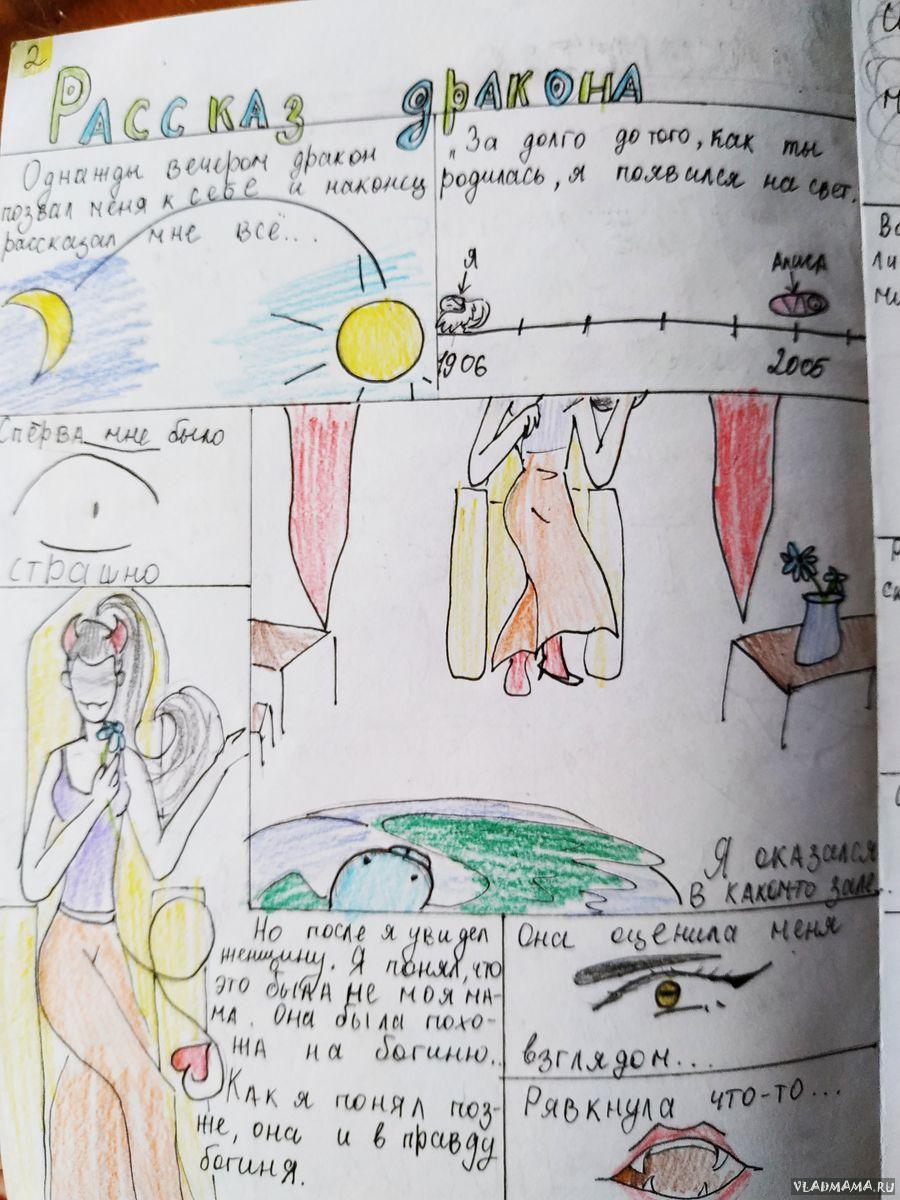 2
Рассказ дракона
Однажды вечером дракон
позвал меня к себе и наконец
рассказал мне всё...
„За долго до того, как ты
родилась, я появился на свет.
Я
Алиса
1906
2005
Сперва мне было
страшно
Я оказался
в каком то зале.
Но после я увидел
женщину. Я понял, что
это была не моя ма-
ма. Она была похо-
жа на богиню..
Как я понял поз-
же, она и в правду
богиня.
Она оценила меня
взглядом...
Рявкнула что-то...
VLADMAMA.RU